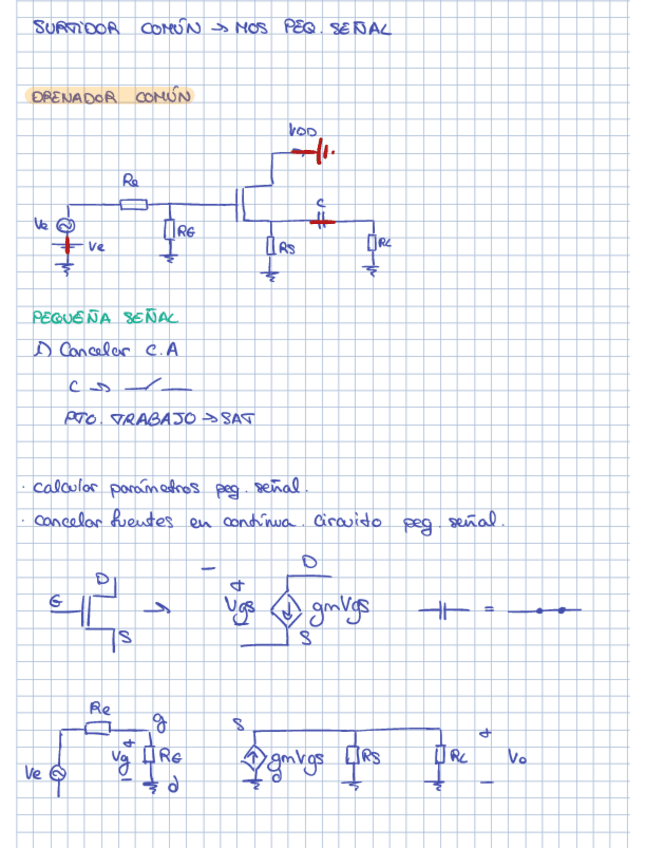 SURTIDOR COMÚN → MOS PEQ. SEÑAL
DRENADOR COMÚN
VDD
Re
C
Ve
RG
RS
RL
Ve
PEQUEÑA SEÑAL
1) Cancelar C.A
C →
PTO. TRABAJO → SAT
· calcular parámetros peq. señal.
· cancelar fuentes en continua. Circuito peq. señal.
D
G
S
→
+
Vgs
-
D
gmVgs
S
=
Re
g
+
Vg
-
RG
d
Ve
S
gmVgs
d
RS
RL
+
Vo
-